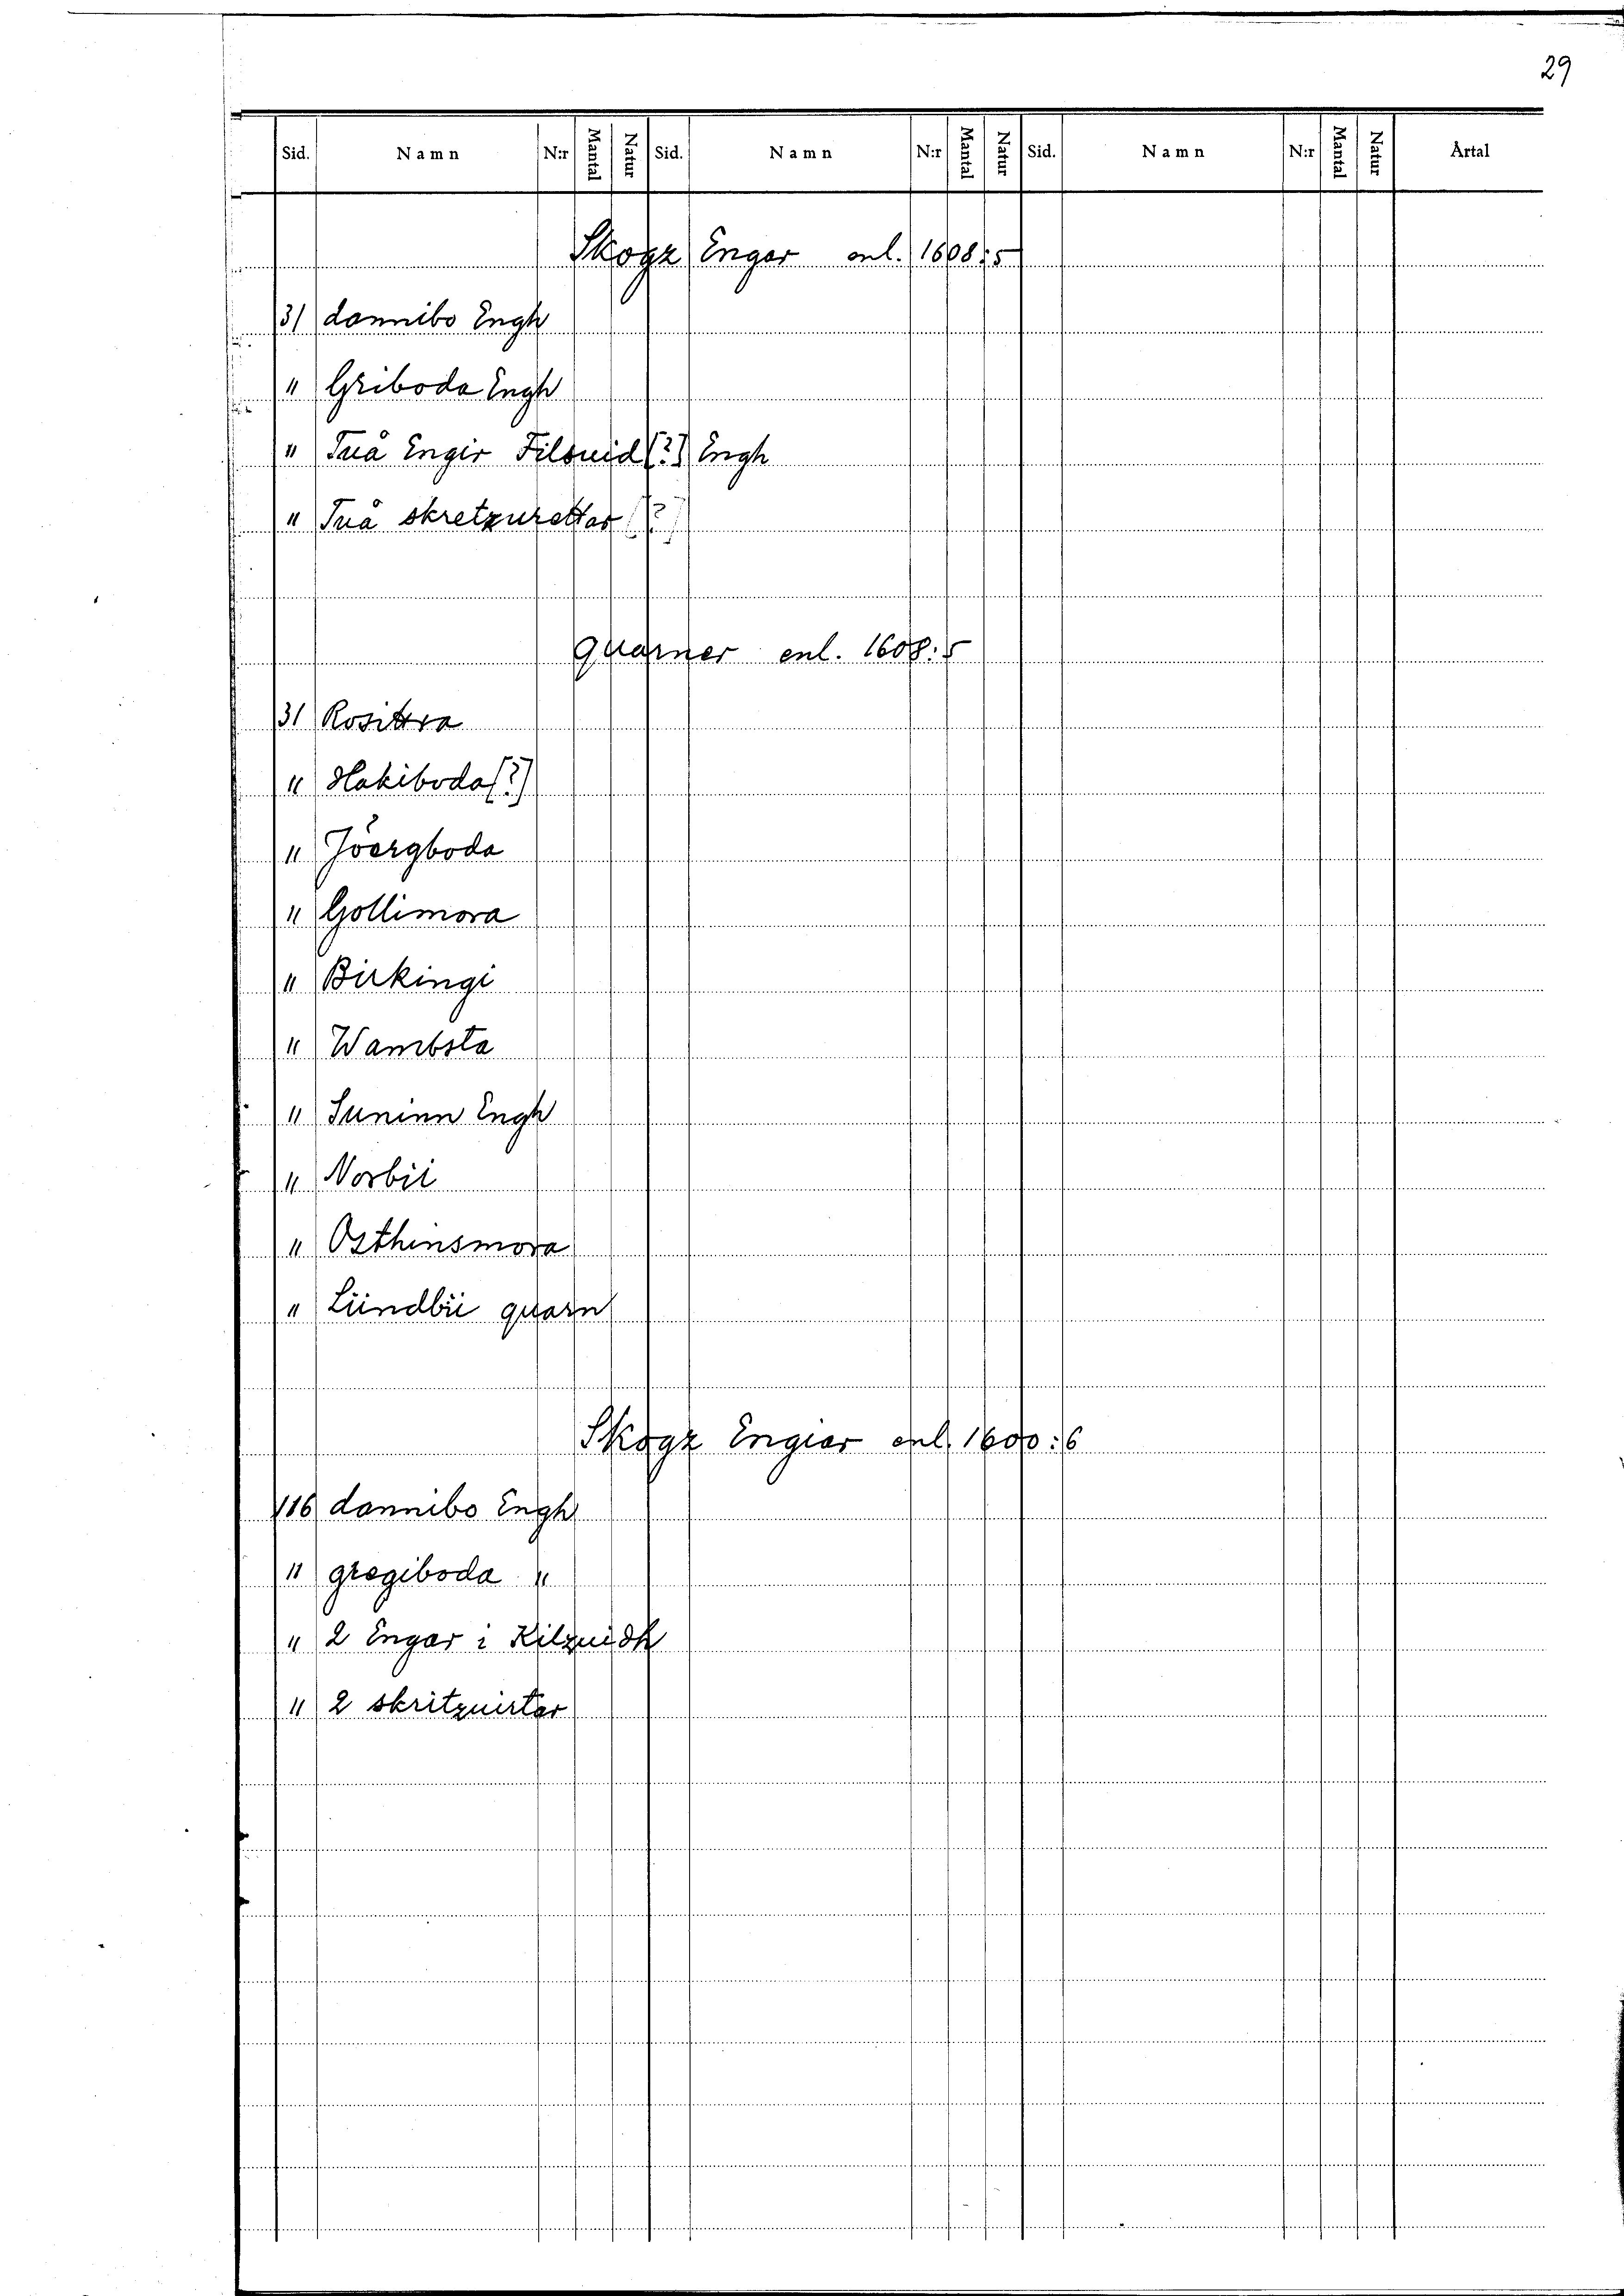 29
Sid. Namn N:r Mantal Natur Sid. Namn N:r Mantal Natur Sid. Namn N:r Mantal Natur Årtal
Skogz Engar enl. 1608:5
31 dannibo Engh
" Griboda Engh
" Tuå Engir Filsuid [?] Engh
" Tuå skretzurettar [?]
quarner enl. 1608:5
31 Rosittra
" Hakiboda [?]
" Jöergboda
" Gollimora
" Birkingi
" Wambsta
" Suninn Engh
" Norbii
" Osthinsmora
" Lündbÿ quarn
Skogz Engiar enl. 1600:6
116 dannibo Engh
" gregiboda "
" 2 Engar i Kilzuidh
" 2 skritzuirtar